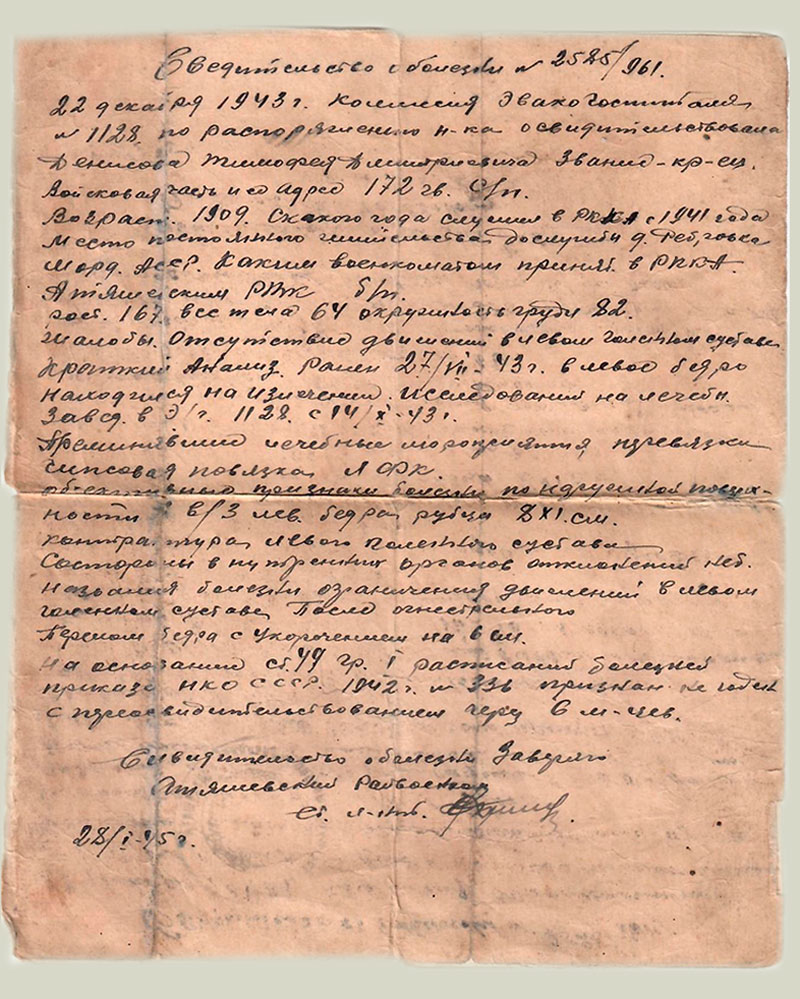 Сведительство о болезни № 2525/961.
22 декабря 1943 г. Комиссия Эвакогоспиталя
№ 1128. по распоряжению н-ка освидетельствовала
Денисова Тимофея Дмитриевича Звание - кр-ец.
Войсковая часть и ее адрес 172 гв. с/п.
Возраст. 1909. С какого года служил в РККА с 1941 года
Место постоянного жительства до службы д.
Морд. АССР. Каким военкоматом принят в РККА.
Атяшевским РВК б/п.
рост. 167. вес тела 64 окружность груди 82.
Жалобы. Отсутствие движений в левом коленном суставе
Краткий Анализ. Ранен 27/VII-43 г. в левое бедро
находился на излечении. исследований на лечебн.
Завед. в Э/г. 1128. с 14/X-43 г.
лечебные мероприятия перевязки
гипсовая повязка ЛФК
признаки болезни по наружной поверх-
ности в/3 лев. бедра рубца 8х1. см.
контрактура левого коленного сустава
Состороны внутренних органов отклонений нет.
Названия болезни ограничения движений в левом
коленном суставе После огнестрельного
Перелом бедра с укорочением на 6 см.
На основании ст. 49 гр. I расписаний болезней
приказа НКО СССР. 1942 г. № 336 признан не годен
с переосвидительствованием через 6 м-цев.
Свидительство о болезни Заверяю
Атяшевский Райвоенком
Ст. л-нт.
28/I-45 г.